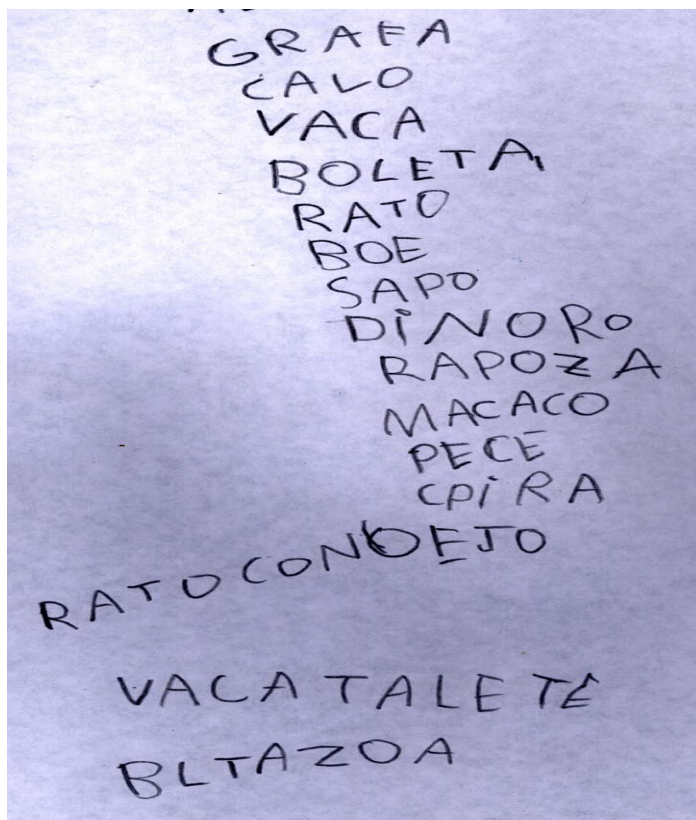 GRAFA
CALO
VACA
BOLETA
RATO
BOE
SAPO
DINORO
RAPOZA
MACACO
PECE
CPIRA
RATO CO
VACA TA LETE
BLTAZOA